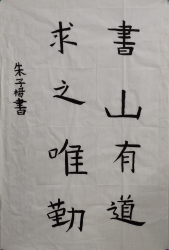 書山有道
求之唯勤
朱子榕書